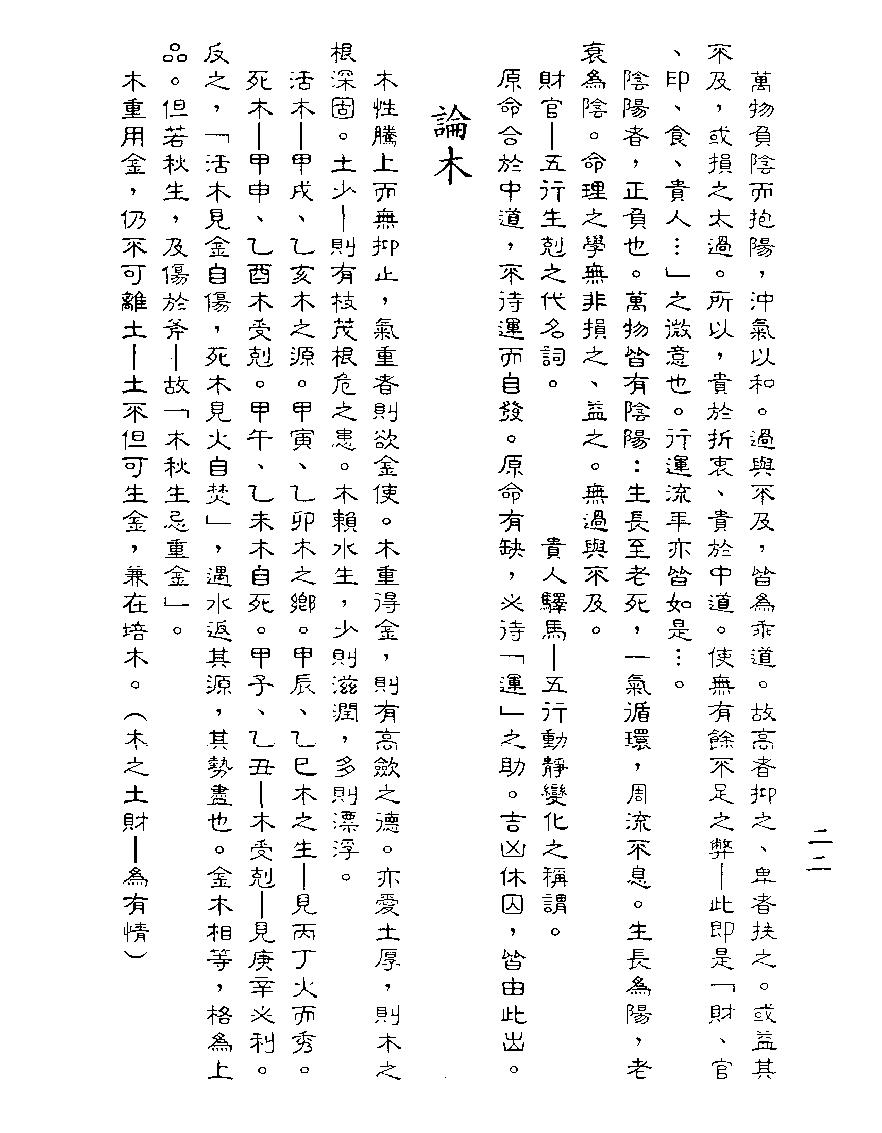 二二
萬物負陰而抱陽，沖氣以和。過與不及，皆為乖道。故高者抑之、卑者扶之。或益其
不及，或損之太過。所以，貴於折衷、貴於中道。使無有餘不足之弊—此即是「財、官
、印、食、貴人…」之微意也。行運流年亦皆如是…。
陰陽者，正負也。萬物皆有陰陽：生長至老死，一氣循環，周流不息。生長為陽，老
衰為陰。命理之學無非損之、益之。無過與不及。
財官—五行生剋之代名詞。　貴人驛馬—五行動靜變化之稱謂。
原命合於中道，不待運而自發。原命有缺，必待「運」之助。吉凶休囚，皆由此出。
論木
木性騰上而無抑止，氣重者則欲金使。木重得金，則有高斂之德。亦愛土厚，則木之
根深固。土少—則有枝茂根危之患。木賴水生，少則滋潤，多則漂浮。
活木—甲戌、乙亥木之源。甲寅、乙卯木之鄉。甲辰、乙巳木之生—見丙丁火而秀。
死木—甲申、乙酉木受剋。甲午、乙未木自死。甲子、乙丑—木受剋—見庚辛必利。
反之，「活木見金自傷，死木見火自焚」，遇水返其源，其勢盡也。金木相等，格為上
品。但若秋生，及傷於斧—故「木秋生忌重金」。
木重用金，仍不可離土—土不但可生金，兼在培木。（木之土財—為有情）